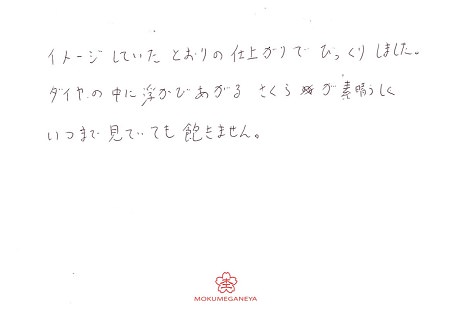 イメージしていたとおりの仕上がりでびっくりしました。
ダイヤの中に浮かびあがるさくらが素晴らしく
いつまで見ていても飽きません。
MOKUMEGANEYA